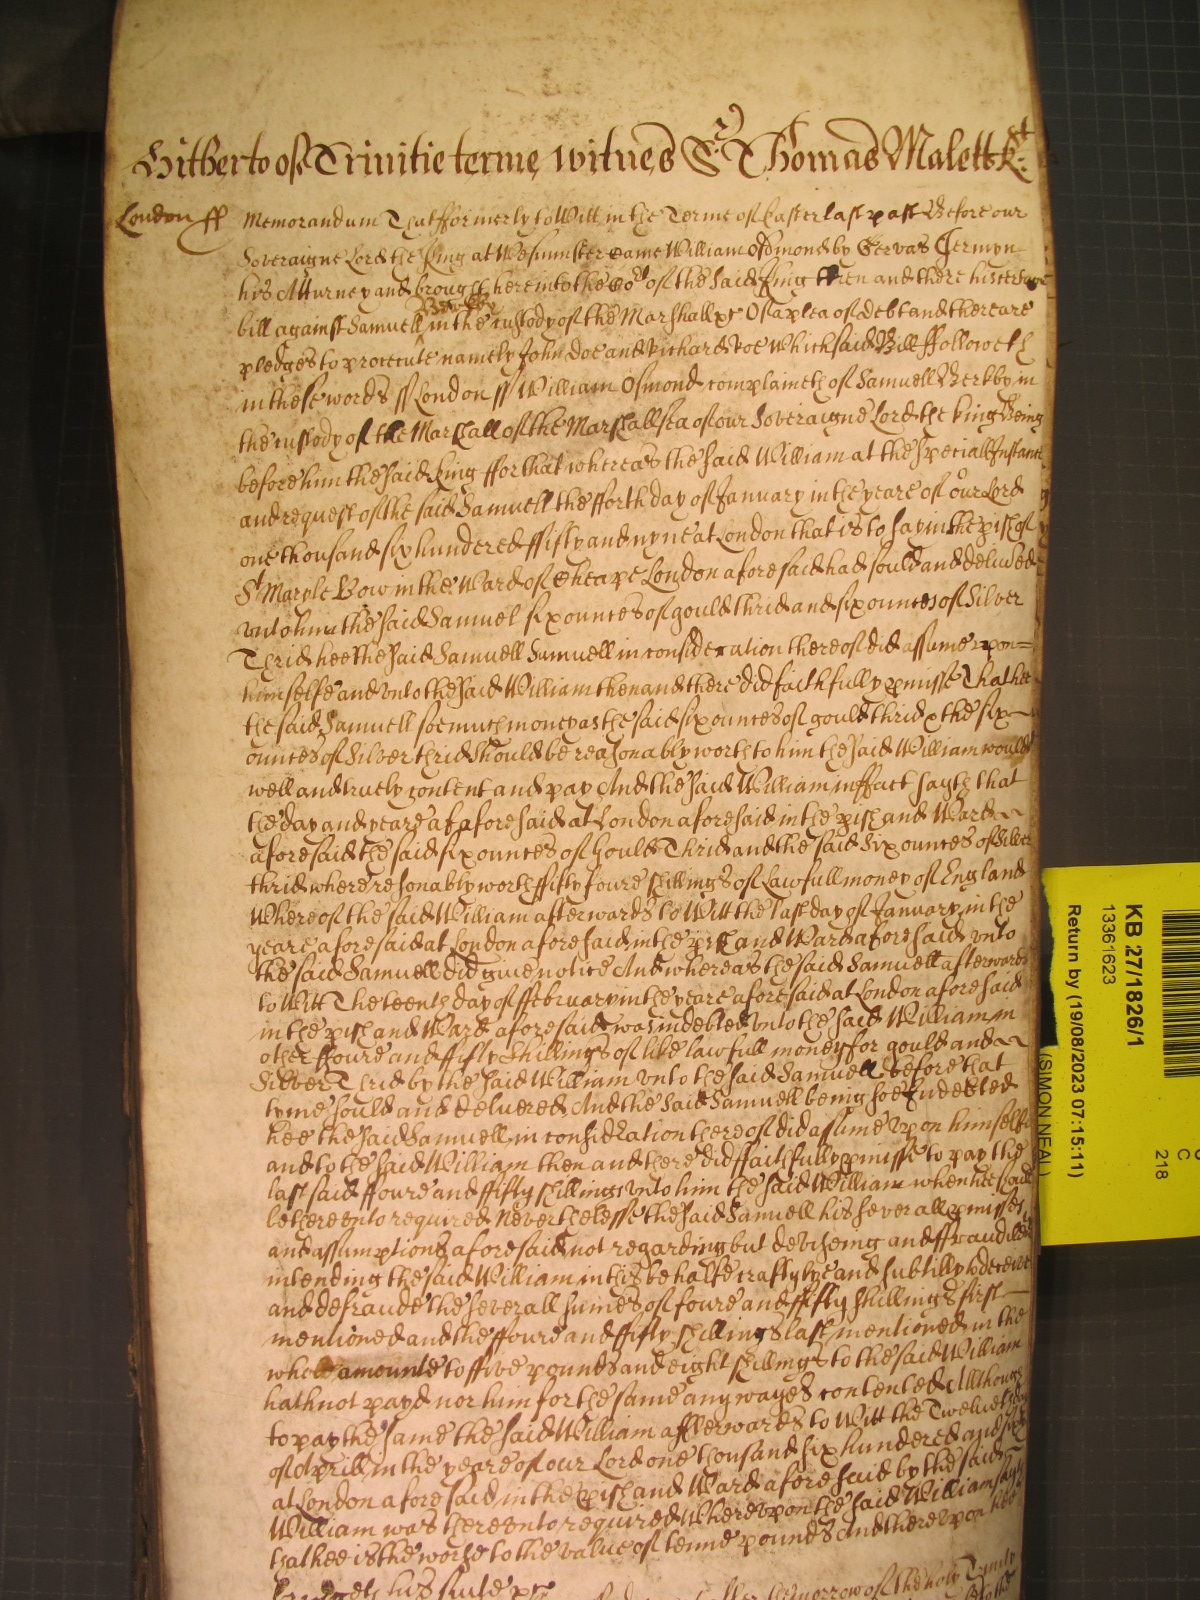 Hitherto of Trinitie terme witnes Sr Thomas Malett kt:
London ss Memorandum That fformerly to Witt in the Terme of Easter last past Before our
Soveraigne Lord the King at Westminster Came William Osmond by Gervas Jermyn
his Atturney and brought here into the Cort of the said King then and there his certaine
Berkby
bill against Samuell in the custody of the Marshall &c Of a plea of debt and there are
pledges to prosecute namely John doe and Richard roe Which said Bill ffolloweth
in these words ss London ss William Osmond complaineth of Samuell Berkby in
the custody of the Marshall of the Marshallsea of our Soveraigne Lord the King Being
before him the said King ffor that whereas the said William at the Speciall Instance
and request of the said Samuell the fforth day of January in the yeare of our Lord
one thousand six hundered ffifty and nyne at London that is to say in the pish of
St Maryle Bow in the Ward of Cheape London aforesaid had sould and delivered
unto him the said Samuel six ounces of gould thrid and six ounces of Silver
Thrid hee the said Samuell Samuell in consideration thereof did assume upon=
himselfe and unto the said William then and there did faithfully pmisse That hee
the said Samuell soe much money as the said six ounces of gould thrid & the six
ounces of Silver thrid should be reasonably worth to him the said William would
well and truely content and pay And the said William in ffact sayth that
the day and yeare af aforesaid at London aforesaid in the pish and Ward
aforesaid the said six ounces of Gould Thrid and the said Six ounces of Silver
thrid where resonably worth ffifty foure shillings of Lawfull money of England
Whereof the said William afterwards to Witt the last day of January in the
yeare aforesaid at London aforesaid in the pish and Ward aforesaid unto
the said Samuell did give notice And whereas the said Samuell afterwards
to Witt The teenth day of ffebruary in the yeare aforesaid at London aforesaid
in the pish and Ward aforesaid was indebted unto the said William in
other ffoure and ffifty Shillings of like lawfull money for gould and
Silver Thrid by the said William unto the said Samuell before that
tyme sould and delivered And the said Samuell being soe Indebted
hee the said Samuell in considration thereof did assume upon himselfe
and to the said William then and there did ffaithfully pmisse to pay the
last said ffoure and ffifty shillings unto him the said William when hee should
be thereunto required Neverthelesse the said Samuell his severall pmisses
and assumptions aforesaid not regarding but deviseing and ffraudilently
intending the said William in this behalfe craftylye and subtilly to deceive
and defraude the severall sumes of foure and ffifty shillings first
mentioned and the ffoure and ffifty shillings last mentioned in the
whole amounte to ffive pounds and eight shillings to the said William
hath not payd nor him for the same any wayes contented Although
to pay the same the said William afterwards to Witt the Twelveth day
of Aprill in the yeare of our Lord one thousand six hundered and sixty
at London aforesaid in the pish and Ward aforesaid by the said
William was thereunto required Whereupon the said William sayth
that hee is the worse to the value of tenne pounds And thereupon hee
bringeth his suite &c
morrow of the holy Trinity
KB 27/1826/1
13361623
Return by (19/08/2023 07:15:11)
(SIMON NEAL)
C
218